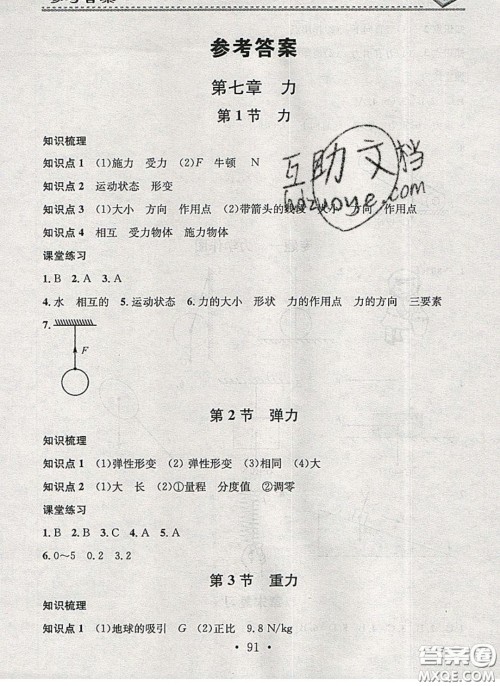 参考答案
参考答案
第七章 力
第1节 力
知识梳理
知识点1 (1)施力 受力 (2)F 牛顿 N
知识点2 运动状态 形变
知识点3 (1)大小 方向 作用点 (2)带箭头的线段 大小 方向 作用点
知识点4 相互 受力物体 施力物体
互助文档
hdzuoye.com
课堂练习
1.B 2.A 3.A
4.水 相互的 5.运动状态 6.力的大小 形状 力的作用点 力的方向 三要素
7.
F
第2节 弹力
知识梳理
知识点1 (1)弹性形变 (2)弹性形变 (3)相同 (4)大
知识点2 (1)大 长 (2)①量程 分度值 ②调零
课堂练习
1.B 2.B 3.C 4.A 5.A
6.0～5 0.2 3.2
第3节 重力
知识梳理
知识点1 (1)地球的吸引 G (2)正比 9.8 N/kg
· 91 ·